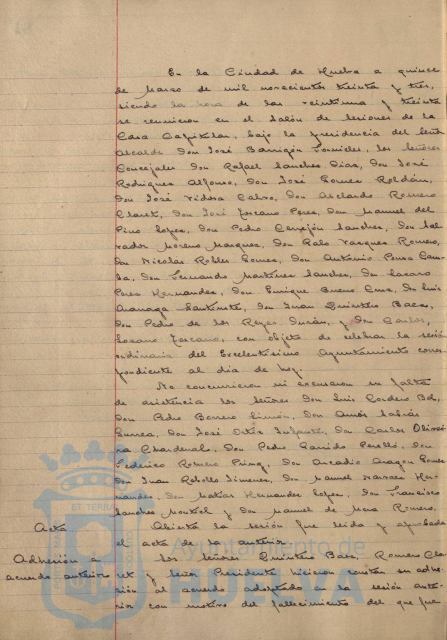 En la Ciudad de Huelva a quince
de Marzo de mil novecientos treinta y tres,
siendo la hora de las veintiuna y treinta
se reunieron en el Salón de Sesiones de la
Casa Capitular, bajo la presidencia del Señor
Alcalde Don José Barrigón Fornieles, los Señores
Concejales Don Rafael Sanchez Diaz, Don José
Rodriguez Alfonso, Don José Ponce Roldán,
Don José Vidosa Calvo, Don Abelardo Romero
Claret, Don José Toscano Perez, Don Manuel del
Pino Lopez, Don Pedro Cerrejón Sanchez, Don Sal-
vador Moreno Marquez, Don Galo Vazquez Romero,
Don Nicolas Robles Gomez, Don Antonio Pousa Cam-
ba, Don Fernando Martinez Sanchez, Don Lazaro
Perez Hernandez, Don Enrique Bueno Cruz, Don Luis
Don Juan Quintero Baez,
Don Pedro de los Reyes Durán, y Don Carlos,
Lozano Toscano, con objeto de celebrar la sesión
ordinaria del Excelentisimo Ayuntamiento corres-
pondiente al dia de hoy.
No concurrieron ni excusaron su falta
de asistencia los señores Don Luis Cordero Bel,
Don Pedro Borrero Limón, Don Amós Sabrás
Gurrea, Don José Ortiz Infante, Don Carlos Olivei-
ra Chardenal, Don Pedro Garrido Perelló, Don
Federico Romero Don Arcadio Aragon Gomez
Don Juan Rebollo Jimenez, Don Manuel Narvaez Her-
nandez, Don Matias Hernandez Lopez, Don Francisco
Sanchez Don Manuel de Mora Romero.
Acta Abierta la sesión fue leida y aprobada
el acta de la anterior.
Adhesión a Los Señores Quintero Baez, Romero Cla-
acuerdo anterior ret y Señor Presidente hicieron constar su adhe-
sión al acuerdo adoptado en la sesión ante-
rior con motivo del fallecimiento del que fue
ET TERRAE
Ayuntamiento de
HUELVA